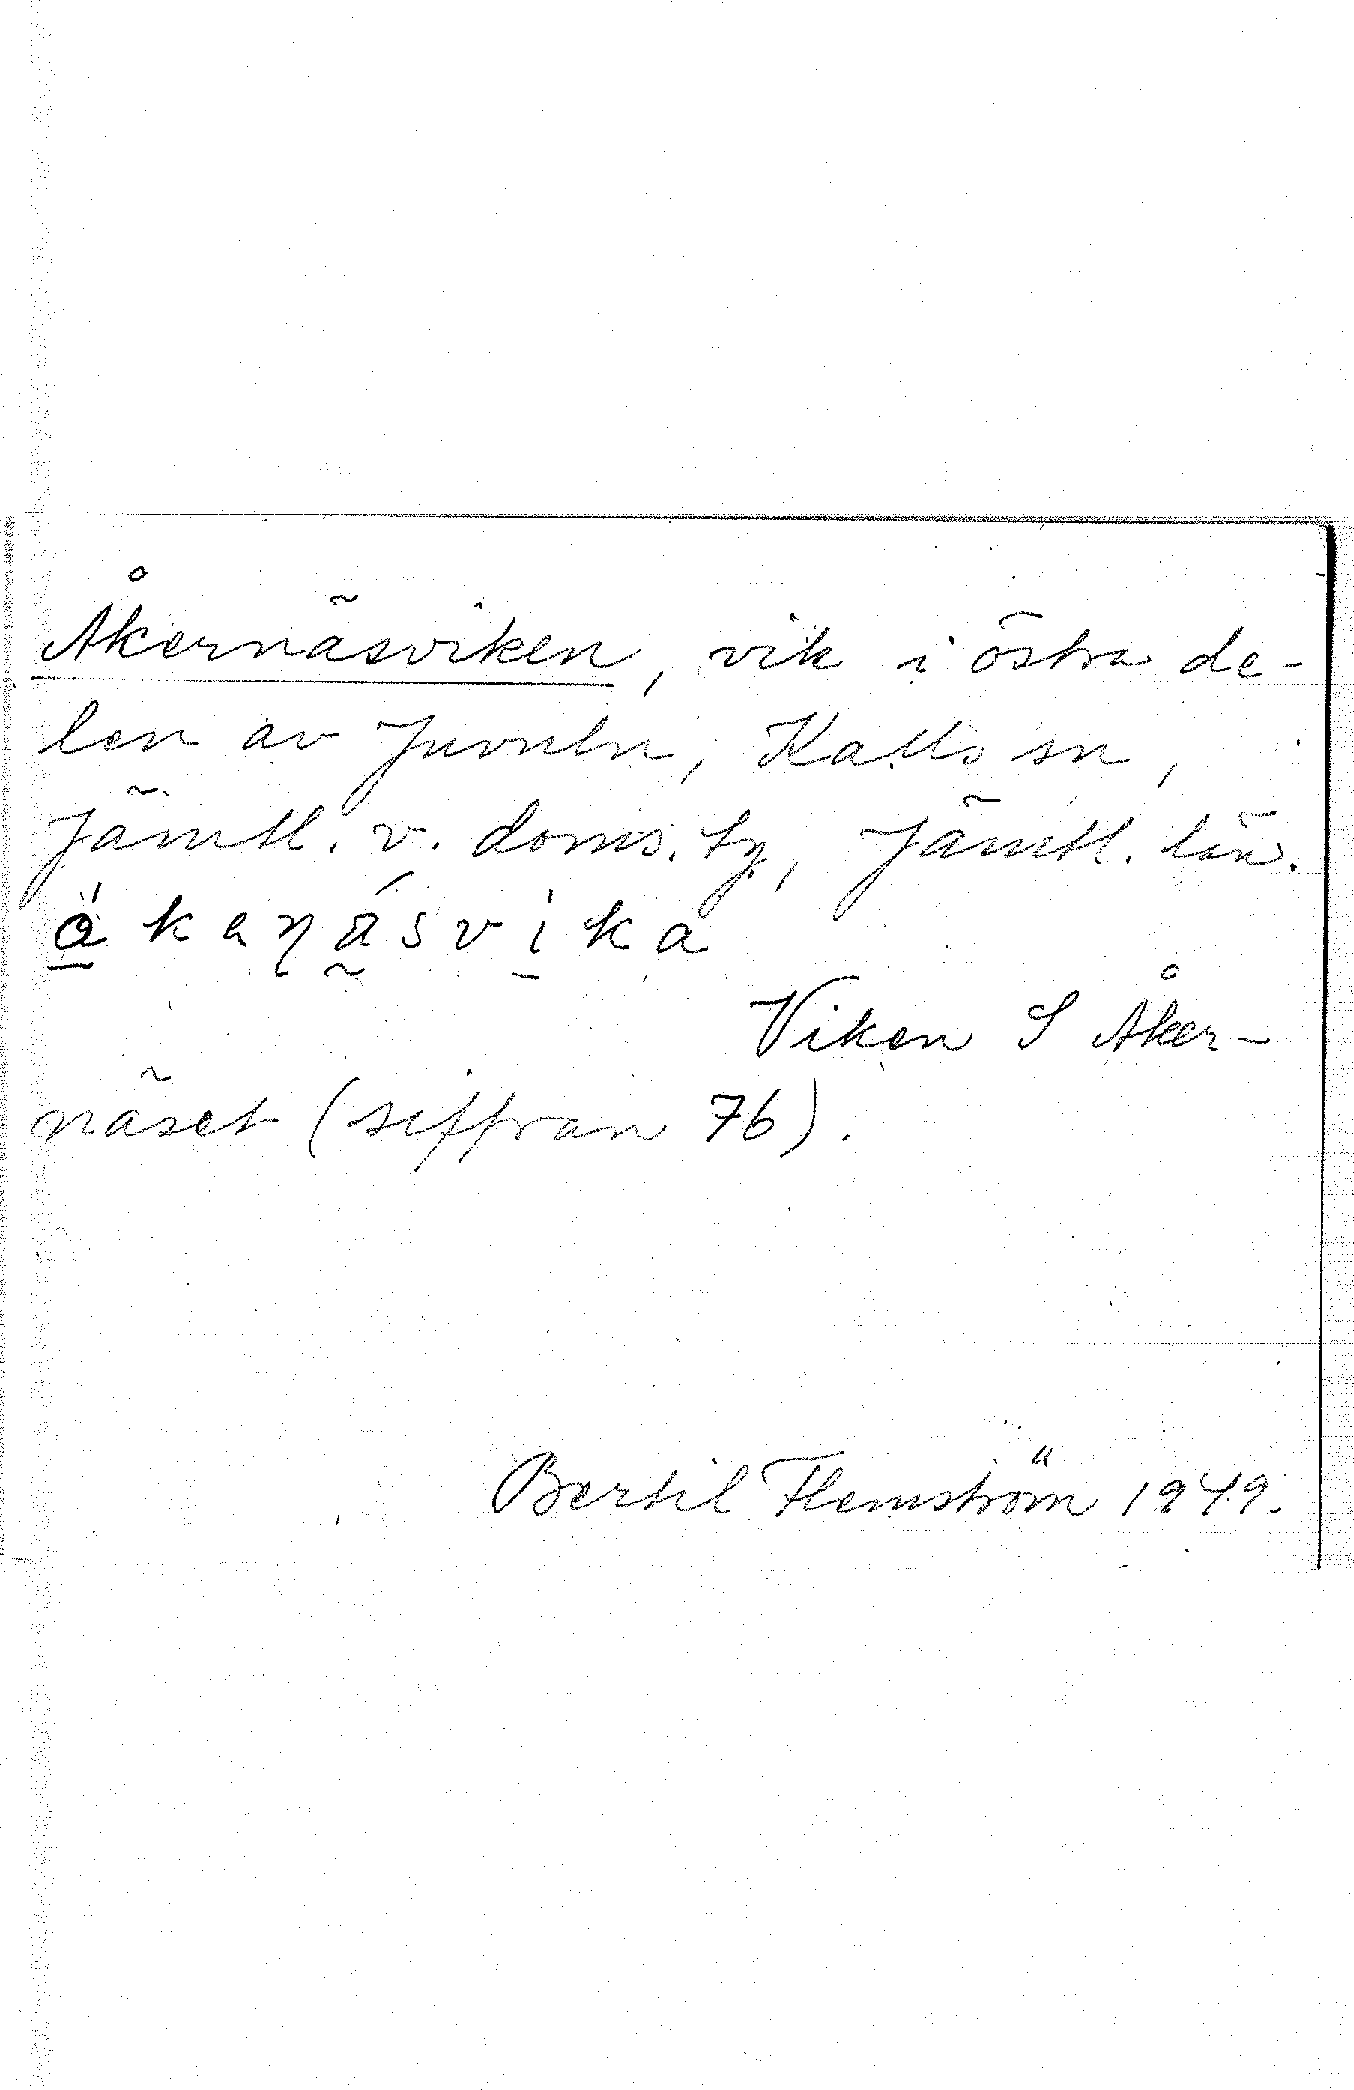 Åkernäsviken, vik i östra de-
len av Juvuln, Kalls sn,
Jämtl. v. doms. tg, Jämtl. län.
Viken S Åker-
näset (siffran 76).
Bertil Flemström 1949.